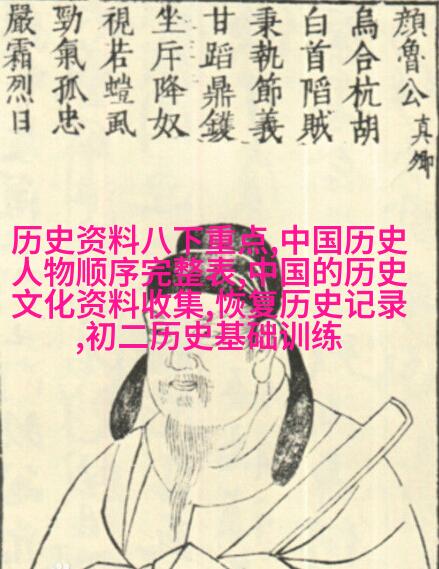 顔魯公 真卿
烏合杭胡
白首陷賊
秉執節義
甘蹈鼎鑊
坐斥降奴
視若螘虱
勁氣孤忠
嚴霜烈日
历史资料八下重点,中国历史
人物顺序完整表,中国的历史
文化资料收集,恢复历史记录
,初二历史基础训练